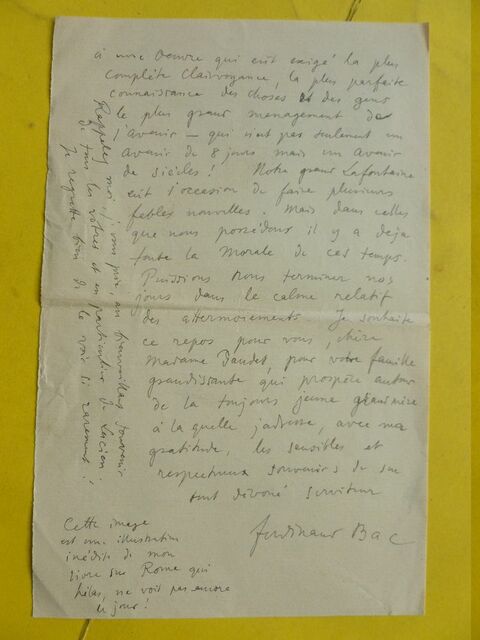 à une Oeuvre qui eut exigé la plus
complète Clairvoyance, la plus parfaite
connaissance des choses et des gens
le plus grand management de
l'avenir — qui n'est pas seulement un
avenir de 8 jours mais un avenir
de siècles ! Notre grand Lafontaine
eut l'occasion de faire plusieurs
fables nouvelles. Mais dans celles
que nous possédons il y a déjà
toute la Morale de ces temps.
Puissions nous terminer nos
jours dans le calme relatif
des attermoiements. Je souhaite
ce repos pour vous, chère
Madame Daudet, pour votre famille
grandissante qui prospère autour
de la toujours jeune grand mère
à la quelle j'adresse, avec ma
gratitude, les sensibles et
respectueux souvenirs de son
tout dévoué serviteur
Ferdinand Bac
Rappelez moi, je vous prie, au bienveillant souvenir
de tous les vôtres et en particulier de Lucien.
Je regrette bien de le voir si rarement !
Cette image
est une illustration
inédite de mon
livre sur Rome qui
hélas, ne voit pas encore
le jour !